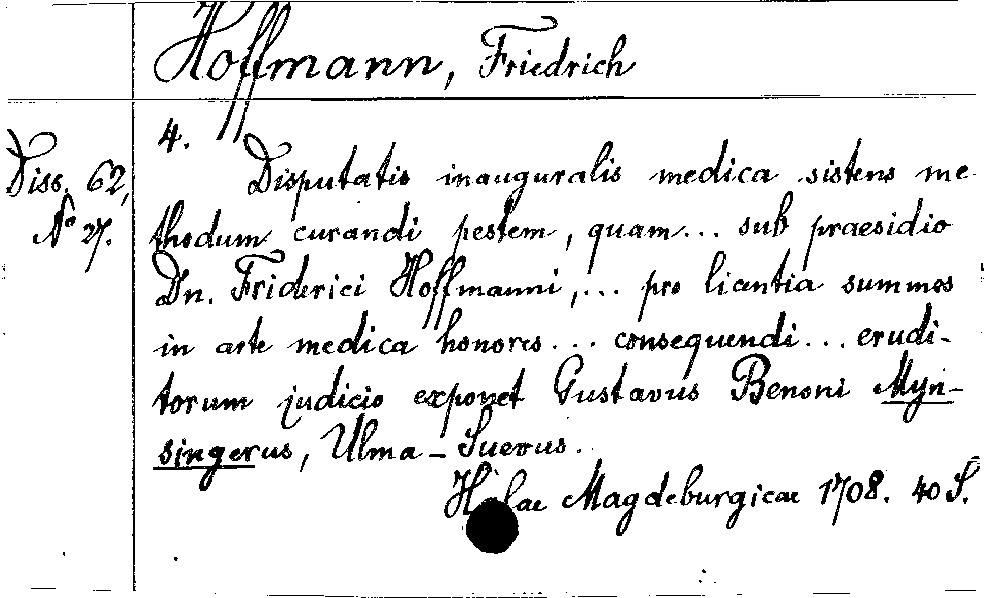 Hoffmann, Friedrich
4.
Diss. 62,
No 27.
Disputatio inauguralis medica sistens me-
thodum curandi pestem, quam... sub praesidio
Dn. Friderici Hoffmanni,... pro licentia summos
in arte medica honores... consequendi... erudi-
torum judicio exponet Gustavus Benoni Myn-
singerus, Ulma-Suevus.
Halae Magdeburgicae 1708. 40 S.